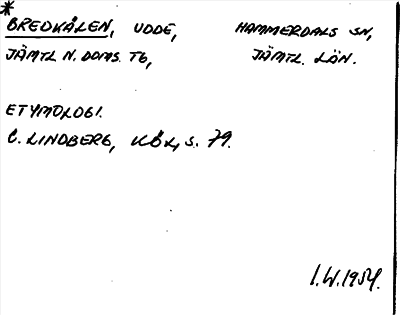 *
BREDKÅLEN, UDDE, HAMMERDALS SN,
JÄMTL N. DOMS. TG, JÄMTL. LÄN.
ETYMOLOGI.
C. LINDBERG, KÖL, S. 79.
I.W.1954.